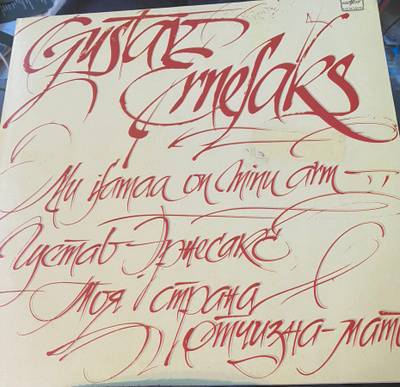 Gustav
Ernesaks
Mu isamaa on minu arm
Густав Эрнесакс
Моя страна
отчизна-мат